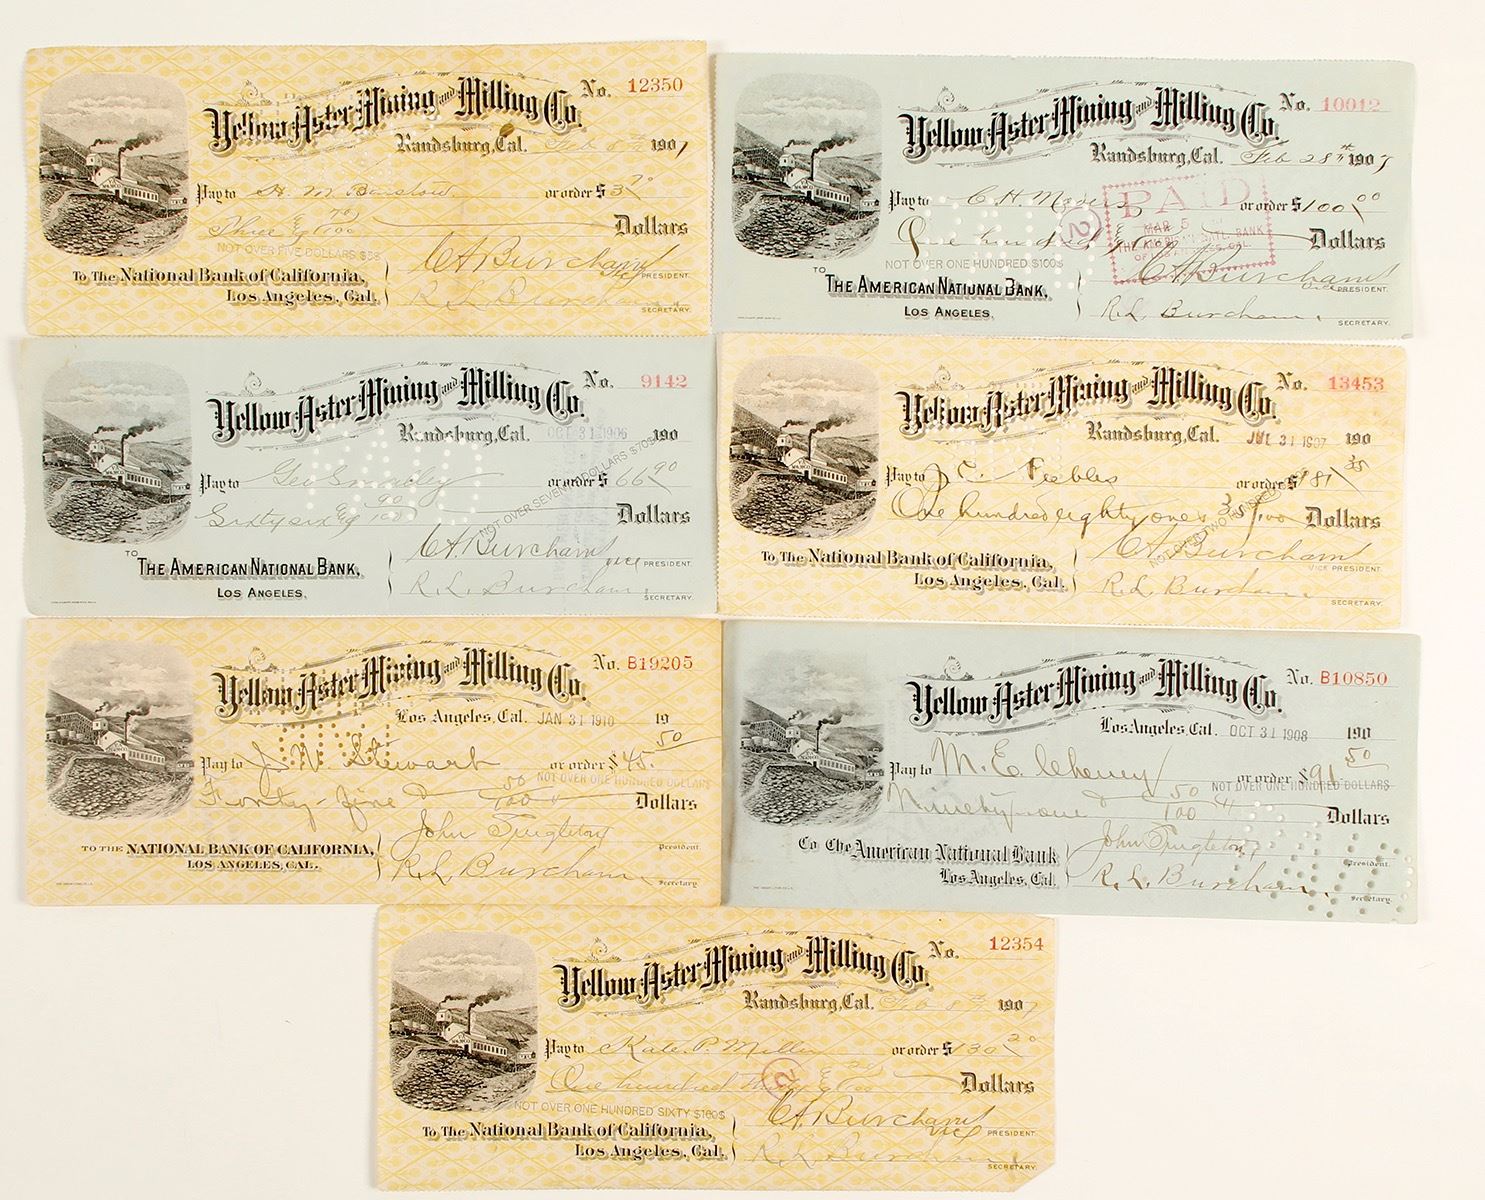 No. 12350
Yellow Aster Mining and Milling Co.
Randsburg, Cal. Feb 8th 1907
Pay to H. M. Barstow or order $ 3 70
Three & 70/100 Dollars
NOT OVER FIVE DOLLARS $5$
To The National Bank of California,
Los Angeles, Cal.
CA Burcham Vice PRESIDENT.
R L Burcham SECRETARY.
No. 10012
Yellow Aster Mining and Milling Co.
Randsburg, Cal. Feb 28th 1907
Pay to C H or order $ 100 00
One hundred & Dollars
NOT OVER ONE HUNDRED $100$
PAID
MAR 5
2
TO
THE AMERICAN NATIONAL BANK,
LOS ANGELES.
CA Burcham Vice PRESIDENT.
R. L. Burcham. SECRETARY.
No. 9142
Yellow Aster Mining and Milling Co.
Randsburg, Cal. OCT 31 1906 190
Pay to Geo or order $ 66 90
Sixty six & 90/100 Dollars
NOT OVER SEVENTY DOLLARS $70$
PAID
TO
THE AMERICAN NATIONAL BANK,
LOS ANGELES.
CA Burcham Vice PRESIDENT.
R. L. Burcham. SECRETARY.
No. 13453
Yellow Aster Mining and Milling Co.
Randsburg, Cal. JUL 31 1907 190
Pay to J C Peebles or order $ 181 35
One hundred eighty one & 35/100 Dollars
NOT OVER TWO HUNDRED
To The National Bank of California,
Los Angeles, Cal.
CA Burcham VICE PRESIDENT.
R. L. Burcham SECRETARY.
No. B19205
Yellow Aster Mining and Milling Co.
Los Angeles, Cal. JAN 31 1910 19
Pay to J. W. Stewart or order $ 45. 50
NOT OVER ONE HUNDRED DOLLARS
Forty-five & 50/100 Dollars
TO THE NATIONAL BANK OF CALIFORNIA,
LOS ANGELES, CAL.
John Singleton President
R. L. Burcham. Secretary
No. B10850
Yellow Aster Mining and Milling Co.
Los Angeles, Cal. OCT 31 1908 190
Pay to M. E. Cheney or order $ 91 50
NOT OVER ONE HUNDRED DOLLARS
Ninety one & 50/100 Dollars
To The American National Bank
Los Angeles, Cal.
John Singleton President.
R. L. Burcham. Secretary.
No. 12354
Yellow Aster Mining and Milling Co.
Randsburg, Cal. Feb 8th 1907
Pay to Kate P. Miller or order $ 130 20
One hundred thirty & 20/100 Dollars
2
NOT OVER ONE HUNDRED SIXTY $160$
To The National Bank of California,
Los Angeles, Cal.
CA Burcham Vice PRESIDENT.
R L Burcham SECRETARY.